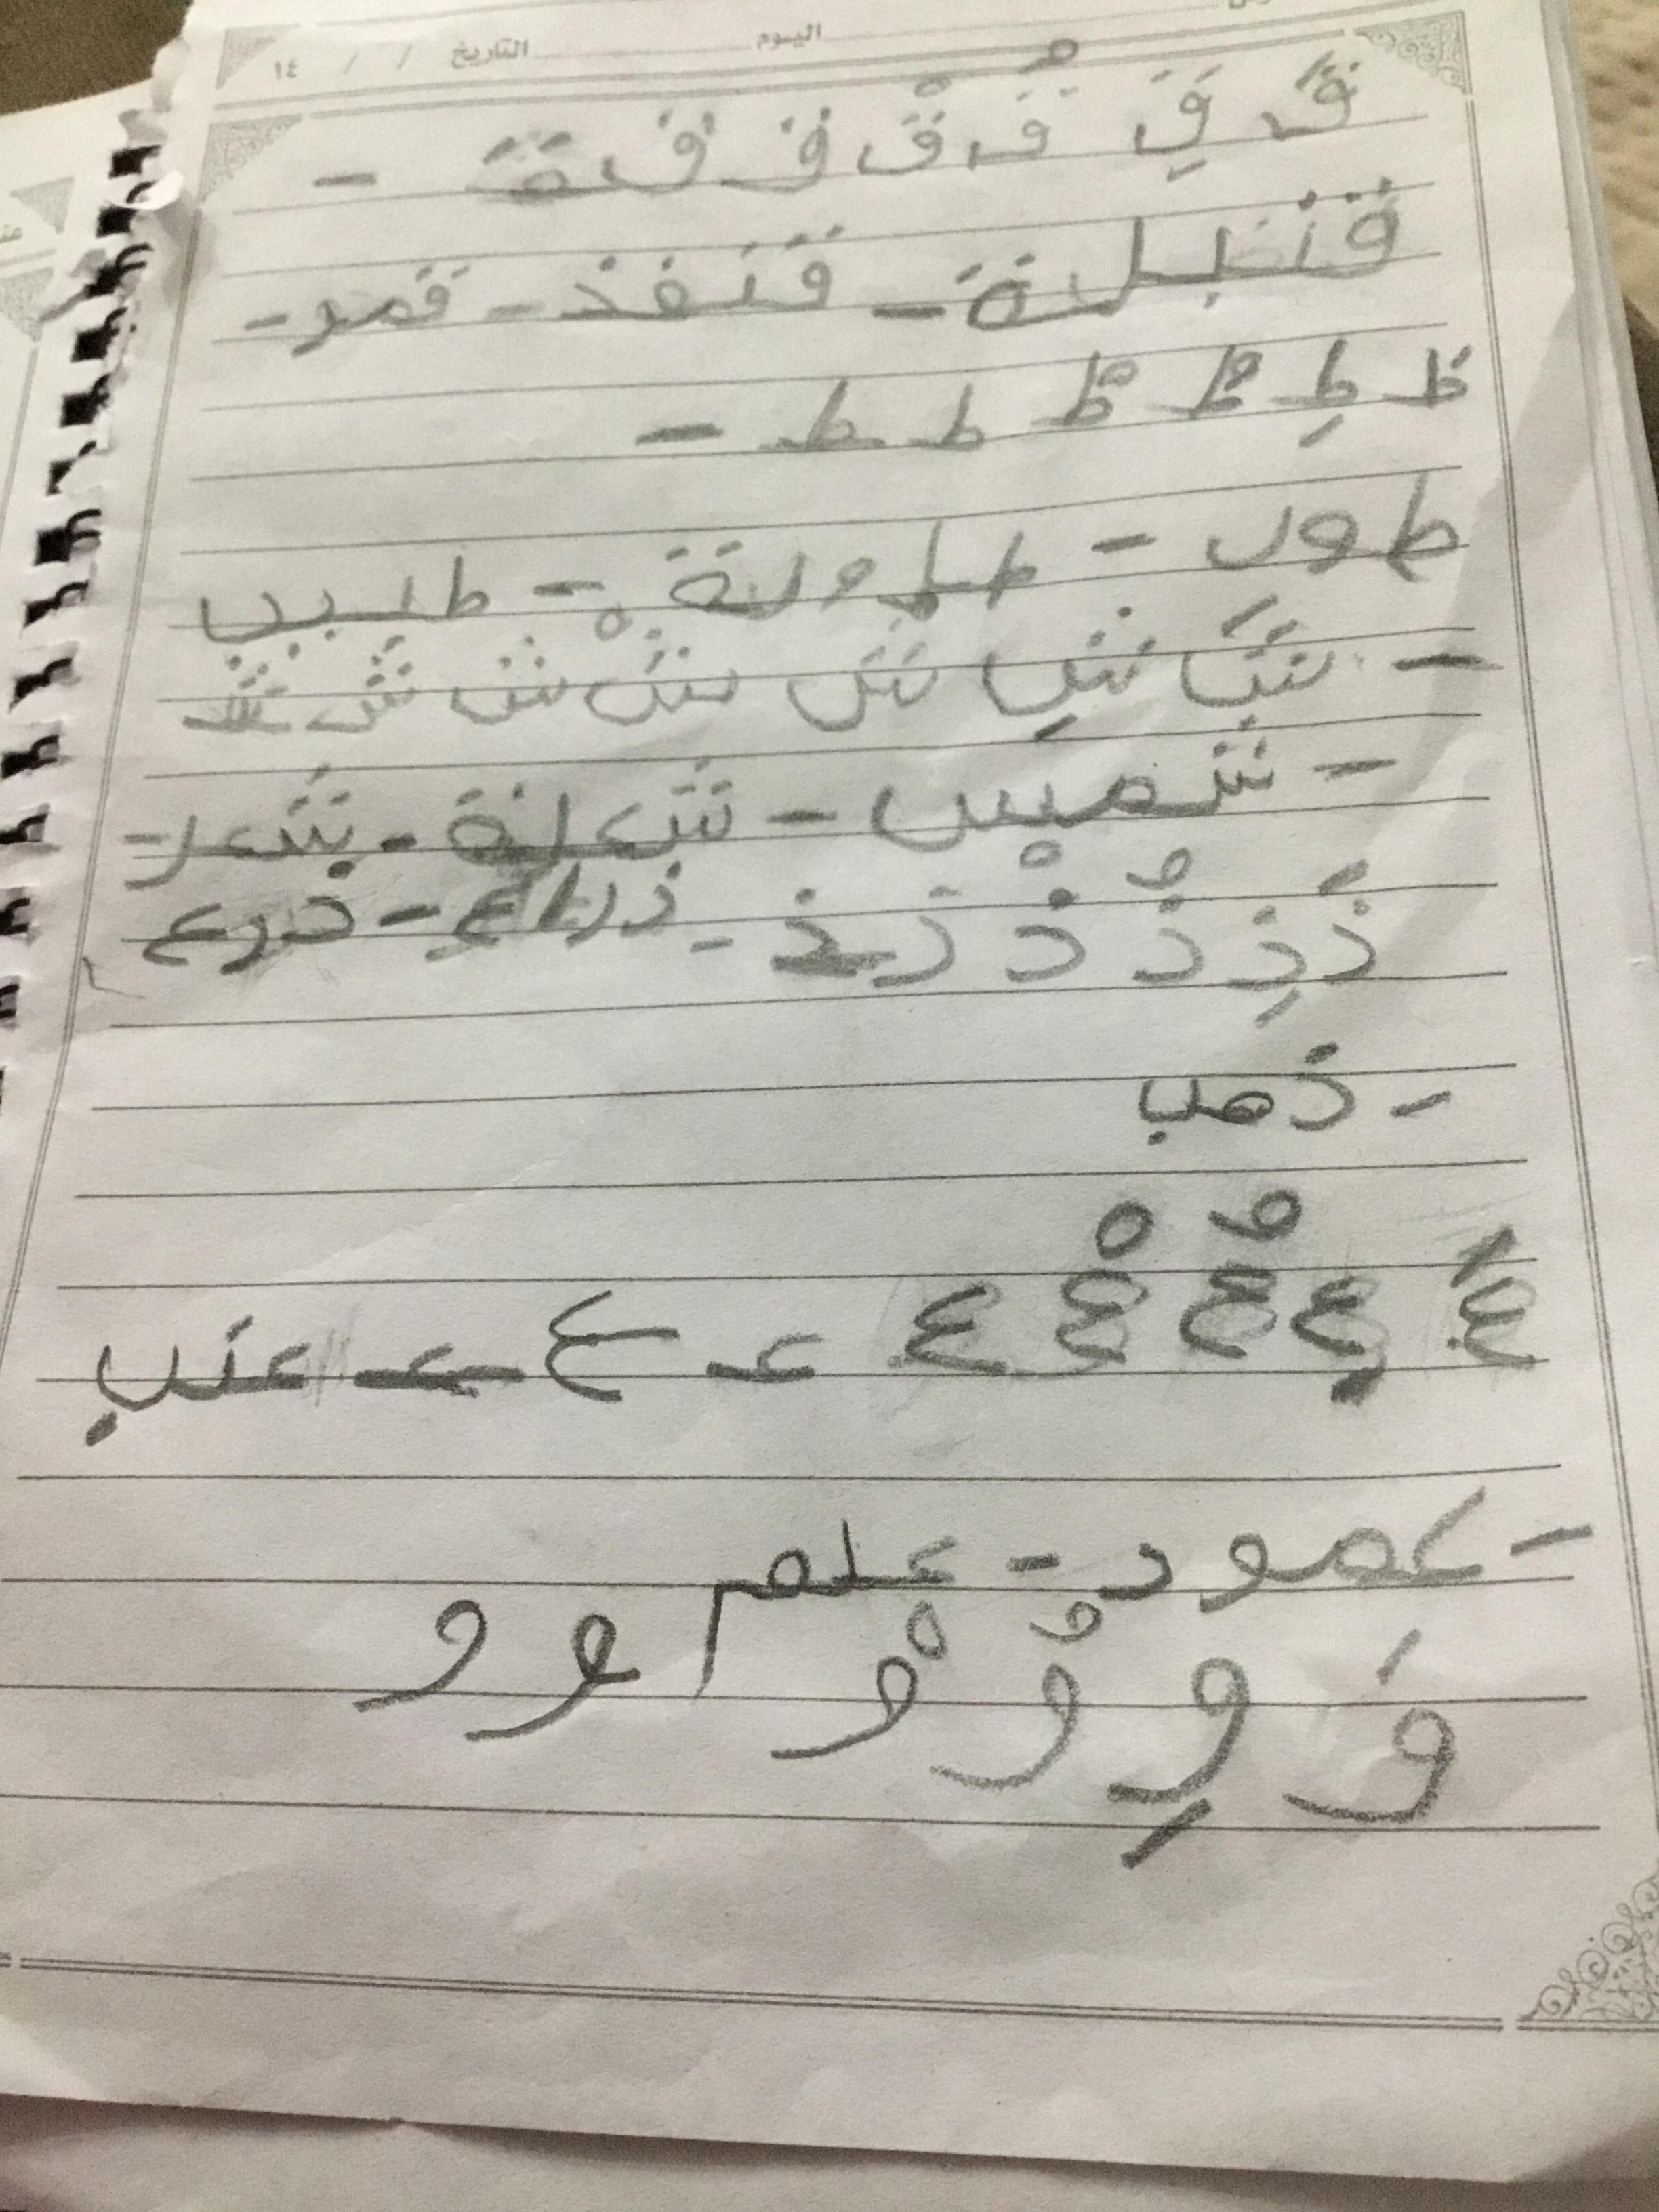 اليوم التاريخ / / ١٤
قَ قِ قُ قْ ق ق ـقـ -
قنبلة - قنفذ - قمر -
طَ طِ طُ طْ ط ط -
طول - طاولة - طبيب
- شَ شِ شُ شْ ش ش شـ
- شمس - شعلة - شعر -
ذَ ذِ ذُ ذْ ذ ـذ - ذراع - درع
- ذهب
عَ عِ عُ عْ ع عـ ع ـعـ عنب
- عمود - علم
وَ وِ وُ وْ و و